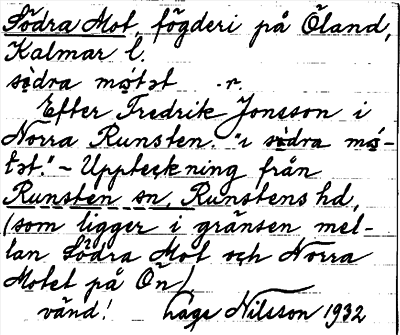 Södra Mot, fögderi på Öland,
Kalmar l.
södra mótət -r.
Efter Fredrik Jonsson i
Norra Runsten. "i södra mó-
tət." - Uppteckning från
Runsten sn, Runstens hd,
(som ligger i gränsen mel-
lan Södra Mot och Norra
Motet på Ön).
vänd! Låge Nilsson 1932